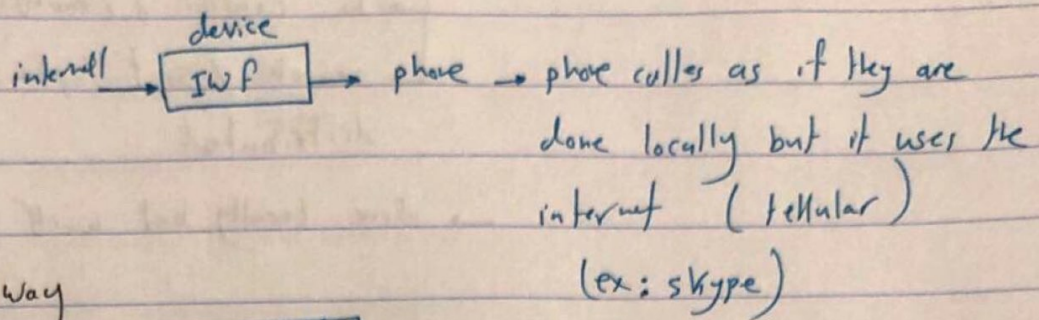 device
internell → IWf → phone → phone calles as if they are
done locally but it uses the
internet (tellular)
(ex: skype)
way